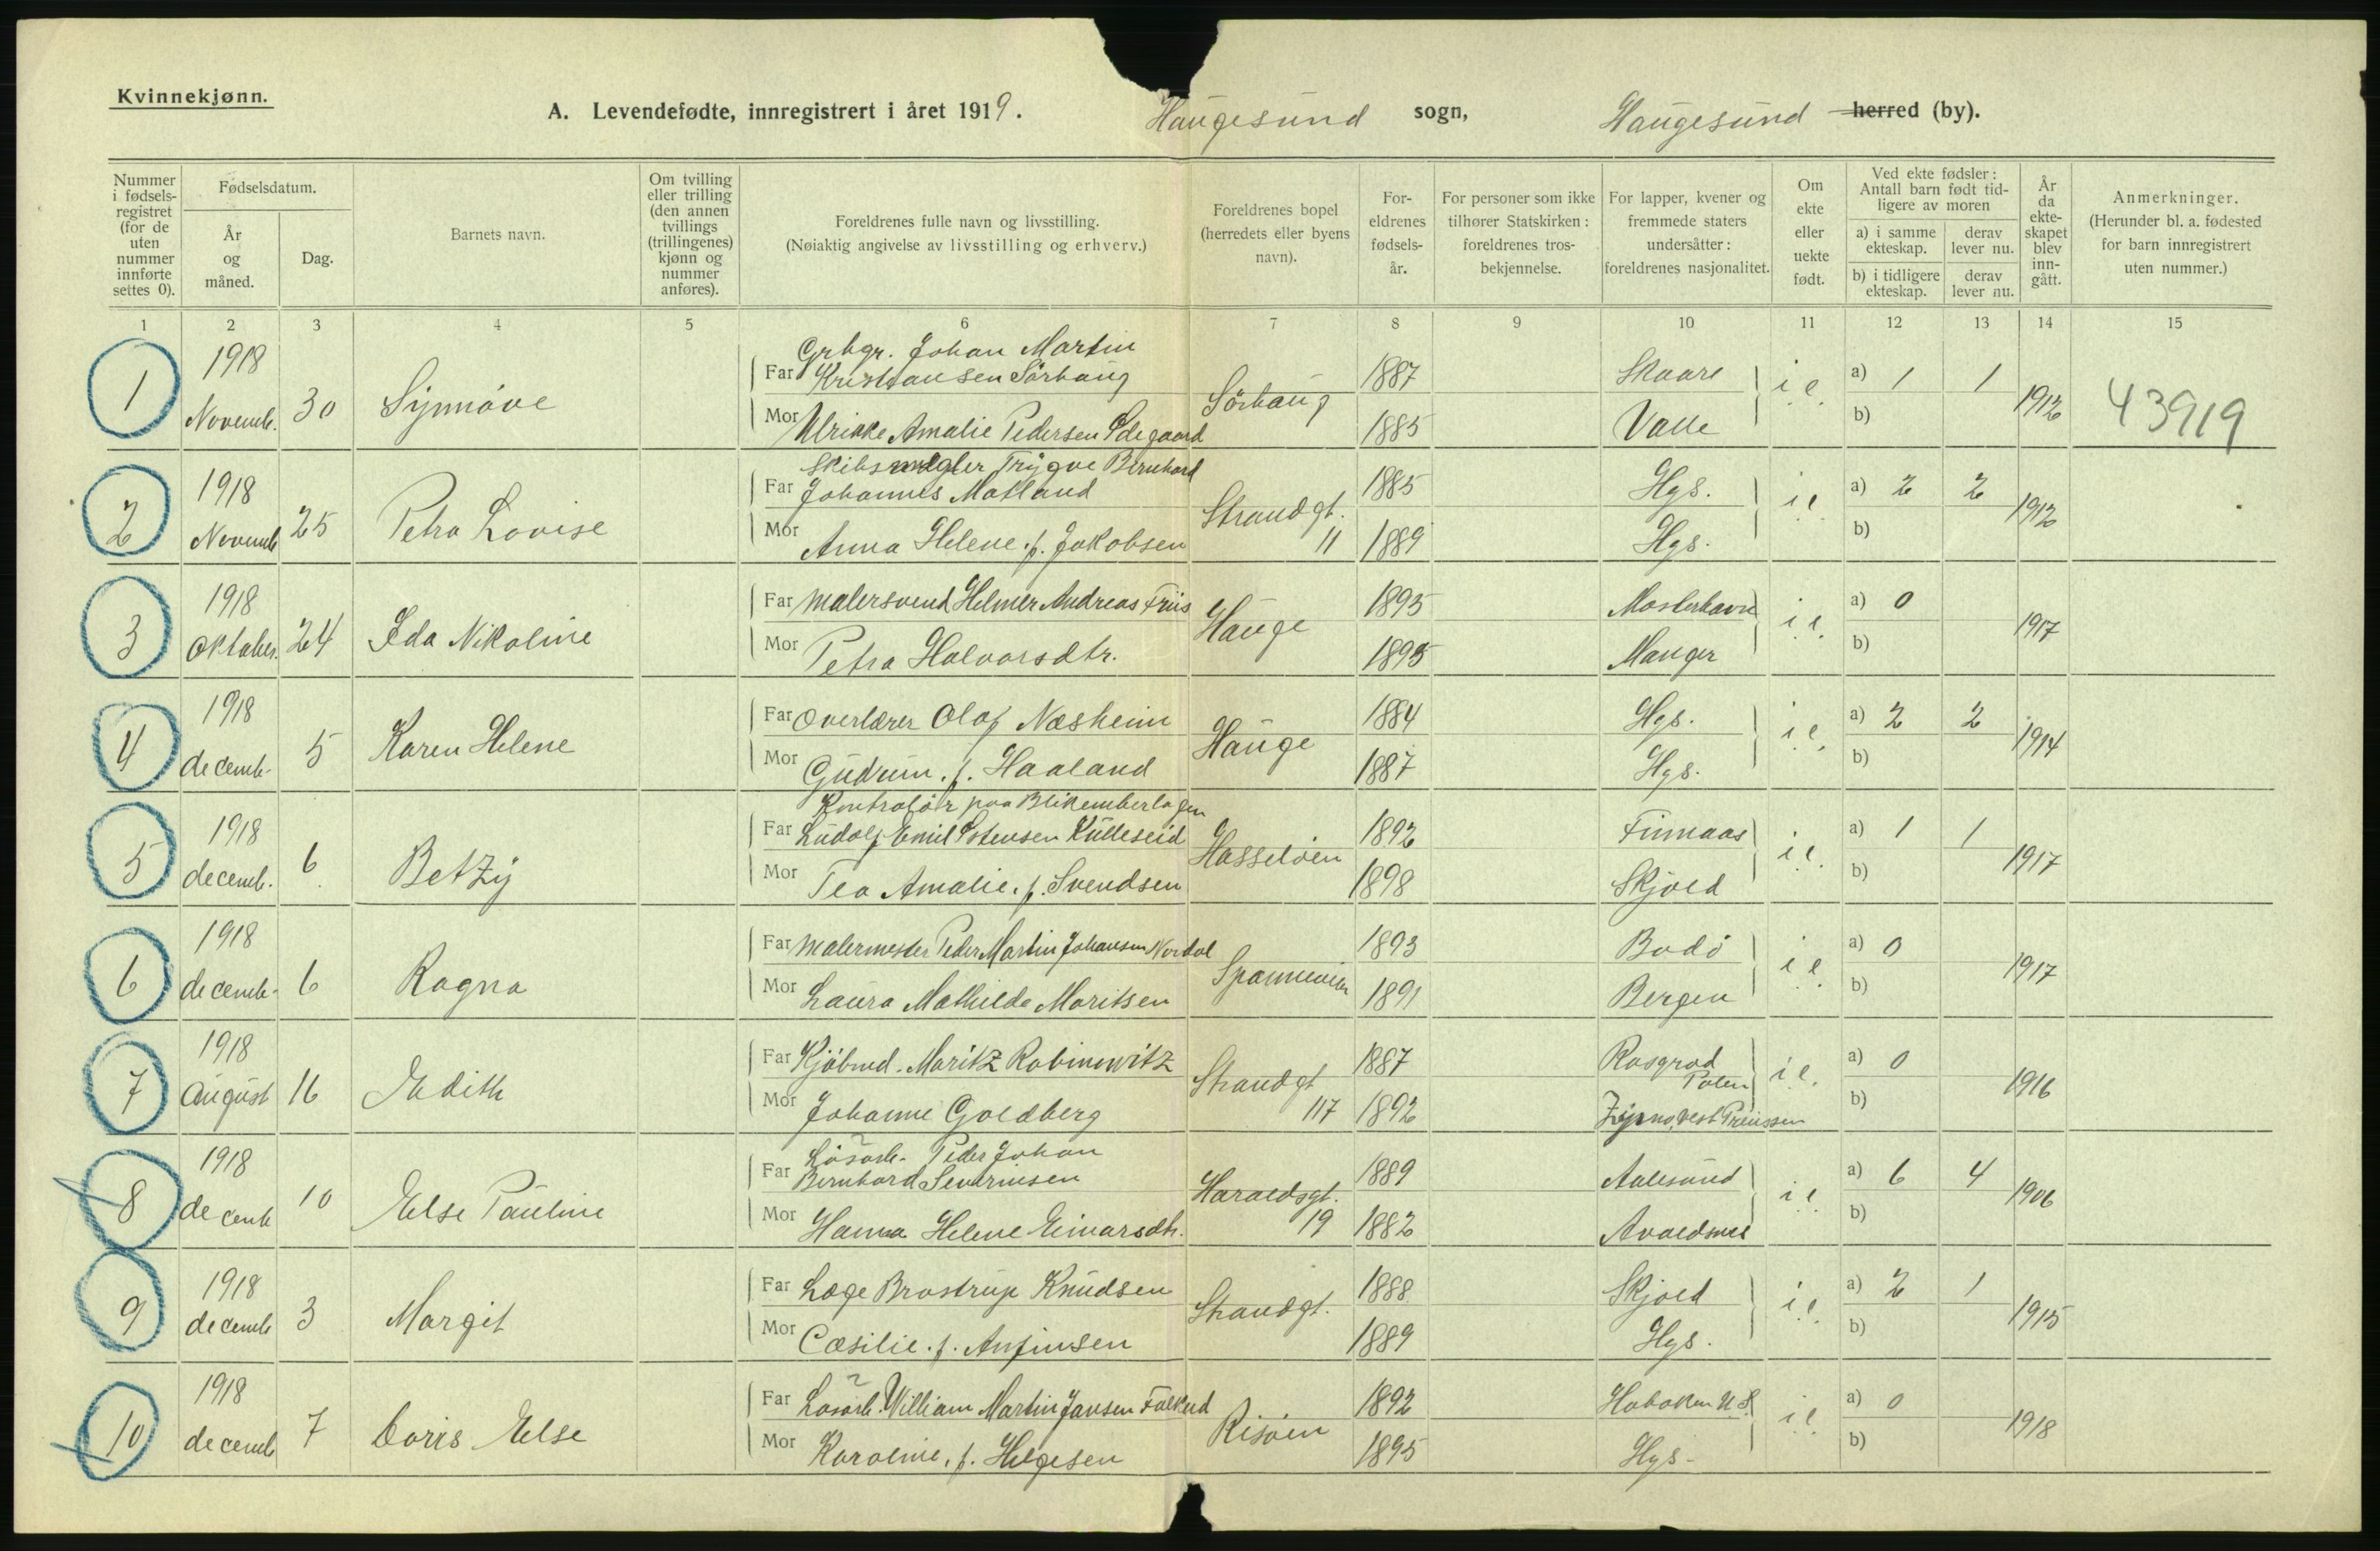 Kvinnekjønn.
A. Levendefødte, innregistrert i året 1919. Haugesund sogn, Haugesund herred (by).
Nummer i fødsels-registret (for de uten nummer innførte settes 0).
Fødselsdatum.
År og måned.
Dag.
Barnets navn.
Om tvilling eller trilling (den annen tvillings (trillingenes) kjønn og nummer anføres).
Foreldrenes fulle navn og livsstilling.
(Nøiaktig angivelse av livsstilling og erhverv.)
Foreldrenes bopel (herredets eller byens navn).
For-eldrenes fødsels-år.
For personer som ikke tilhører Statskirken: foreldrenes tros-bekjennelse.
For lapper, kvener og fremmede staters undersåtter: foreldrenes nasjonalitet.
Om ekte eller uekte født.
Ved ekte fødsler: Antall barn født tid-ligere av moren
a) i samme ekteskap.
derav lever nu.
b) i tidligere ekteskap.
derav lever nu.
År da ekte-skapet blev inn-gått.
Anmerkninger.
(Herunder bl. a. fødested for barn innregistrert uten nummer.)
1 2 3 4 5 6 7 8 9 10 11 12 13 14 15
1 1918 Novemb. 30 Synnöve
Far Grbgr. Johan Martin Kristiansen Sörhaug Sörhaug 1887 Skaare i.e. a) 1 1 1912 43919
Mor Ulrikke Amalie Pedersen Ødegaard 1885 Valle b)
2 1918 Novemb 25 Petra Lovise
Far Skibsmegler Trygve Bernhard Johannes Matland Strandgt. 11 1885 Hgs. i e a) 2 2 1912
Mor Anna Helene. f. Jakobsen 1889 Hgs. b)
3 1918 Oktober. 24 Ida Nikoline
Far Malersvend Helmer Andreas Friis Hauge 1895 Mosterhavn i e. a) 0 1917
Mor Petra Halvorsdtr. 1895 Manger b)
4 1918 decemb. 5 Karen Helene
Far Overlærer Olaf Næsheim Hauge 1884 Hgs. i e. a) 2 2 1914
Mor Gudrun. f. Haaland 1887 Hgs. b)
5 1918 decemb. 6 Betzy
Far Kontrolör paa Ludolf Emil Kulleseid Hasselöen 1892 Finnaas i e. a) 1 1 1917
Mor Tea Amalie. f. Svendsen 1898 Skjold b)
6 1918 decemb. 6 Ragna
Far Malermester Peder Martin Johansen Nordal 1893 Bodö i e a) 0 1917
Mor Laura Mathilde Moritsen 1891 Bergen b)
7 1918 August 16 Edith
Far Kjöbmd. Moritz Rabinowitz Strandgt 117 1887 Rosgrod Polen i e. a) 0 1916
Mor Johanne Goldberg 1892 vest Preussen b)
8 1918 decemb 10 Else Pauline
Far Lösarb. Peder Johan Bernhard Severinsen Haraldsgt. 19 1889 Aalesund i e a) 6 4 1906
Mor Hanna Helene Einarsdtr. 1882 Avaldsnes b)
9 1918 decemb 3 Margit
Far Læge Brostrup Knudsen Strandgt. 1888 Skjold i e. a) 2 1 1915
Mor Cæsilie. f. Anfinsen 1889 Hgs. b)
10 1918 decemb 7 Doris Else
Far Lösarb. William Martin Jansen Risöen 1892 Hoboken U.S. i e. a) 0 1918
Mor Karoline. f. Helgesen 1895 Hgs. b)